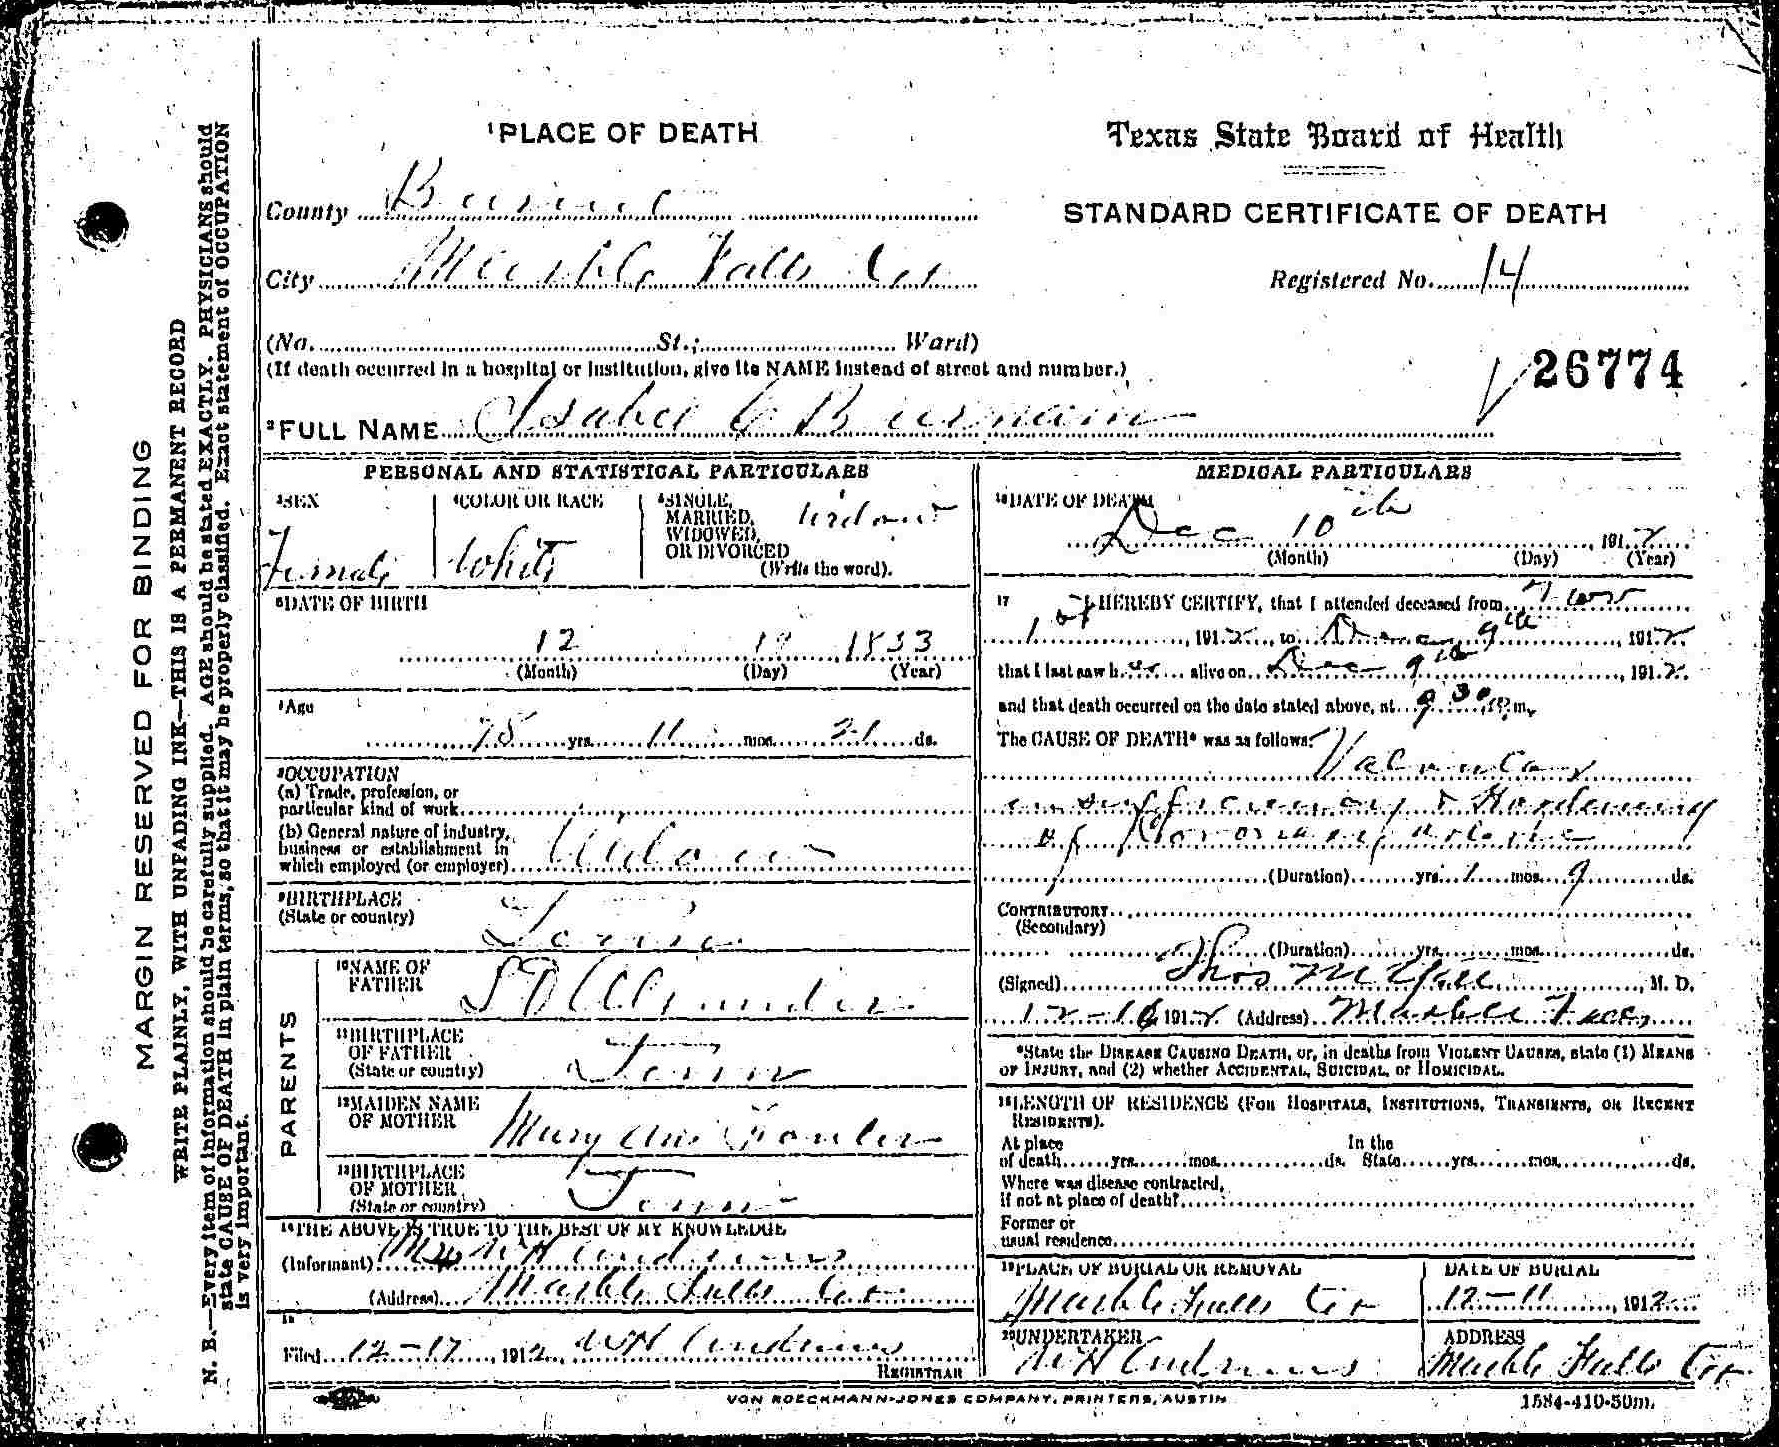 MARGIN RESERVED FOR BINDING
WRITE PLAINLY, WITH UNFADING INK—THIS IS A PERMANENT RECORD
N. B.—Every item of information should be carefully supplied. AGE should be stated EXACTLY. PHYSICIANS should
state CAUSE OF DEATH in plain terms, so that it may be properly classified. Exact statement of OCCUPATION
is very important.
1 PLACE OF DEATH
County Burnet
City Marble Falls Tex
(No. St.; Ward)
(If death occurred in a hospital or institution, give its NAME instead of street and number.)
Texas State Board of Health
STANDARD CERTIFICATE OF DEATH
Registered No. 14
26774
2 FULL NAME Isabel C Burnam
PERSONAL AND STATISTICAL PARTICULARS
3 SEX
Female
4 COLOR OR RACE
White
5 SINGLE,
MARRIED,
WIDOWED,
OR DIVORCED
(Write the word).
Widow
6 DATE OF BIRTH
12 19 1833
(Month) (Day) (Year)
7 Age
78 yrs. 11 mos. 21 ds.
8 OCCUPATION
(a) Trade, profession, or
particular kind of work
(b) General nature of industry,
business or establishment in
which employed (or employer) Widow
9 BIRTHPLACE
(State or country)
PARENTS
10 NAME OF
FATHER
S D Alexander
11 BIRTHPLACE
OF FATHER
(State or country) Tenn
12 MAIDEN NAME
OF MOTHER
Mary Ann Fowler
13 BIRTHPLACE
OF MOTHER
(State or country) Tenn
14 THE ABOVE IS TRUE TO THE BEST OF MY KNOWLEDGE
(Informant) W H Andrews
(Address) Marble Falls Tex
15
Filed 12-17, 1912, W H Andrews
REGISTRAR
MEDICAL PARTICULARS
16 DATE OF DEATH
Dec 10th, 1912
(Month) (Day) (Year)
17 I HEREBY CERTIFY, that I attended deceased from Nov
1st, 1912, to Dec 9th, 1912
that I last saw her alive on Dec 9th, 1912
and that death occurred on the date stated above, at 9 30 P. m.
The CAUSE OF DEATH* was as follows: Valvular
insufficiency & Hardening
of Coronary arteries
(Duration) yrs. 1 mos. 9 ds.
CONTRIBUTORY
(Secondary)
(Duration) yrs. mos. ds.
(Signed) Thos M Yett, M. D.
12-16 1912 (Address) Marble Falls
*State the DISEASE CAUSING DEATH, or, in deaths from VIOLENT CAUSES, state (1) MEANS
OF INJURY, and (2) whether ACCIDENTAL, SUICIDAL, or HOMICIDAL.
18 LENGTH OF RESIDENCE (FOR HOSPITALS, INSTITUTIONS, TRANSIENTS, OR RECENT
RESIDENTS).
At place In the
of death yrs. mos. ds. State yrs. mos. ds.
Where was disease contracted,
if not at place of death?
Former or
usual residence
19 PLACE OF BURIAL OR REMOVAL
Marble Falls Tex
DATE OF BURIAL
12-11, 1912
20 UNDERTAKER
W H Andrews
ADDRESS
Marble Falls Tex
VON BOECKMANN-JONES COMPANY, PRINTERS, AUSTIN
1584-410-50m.